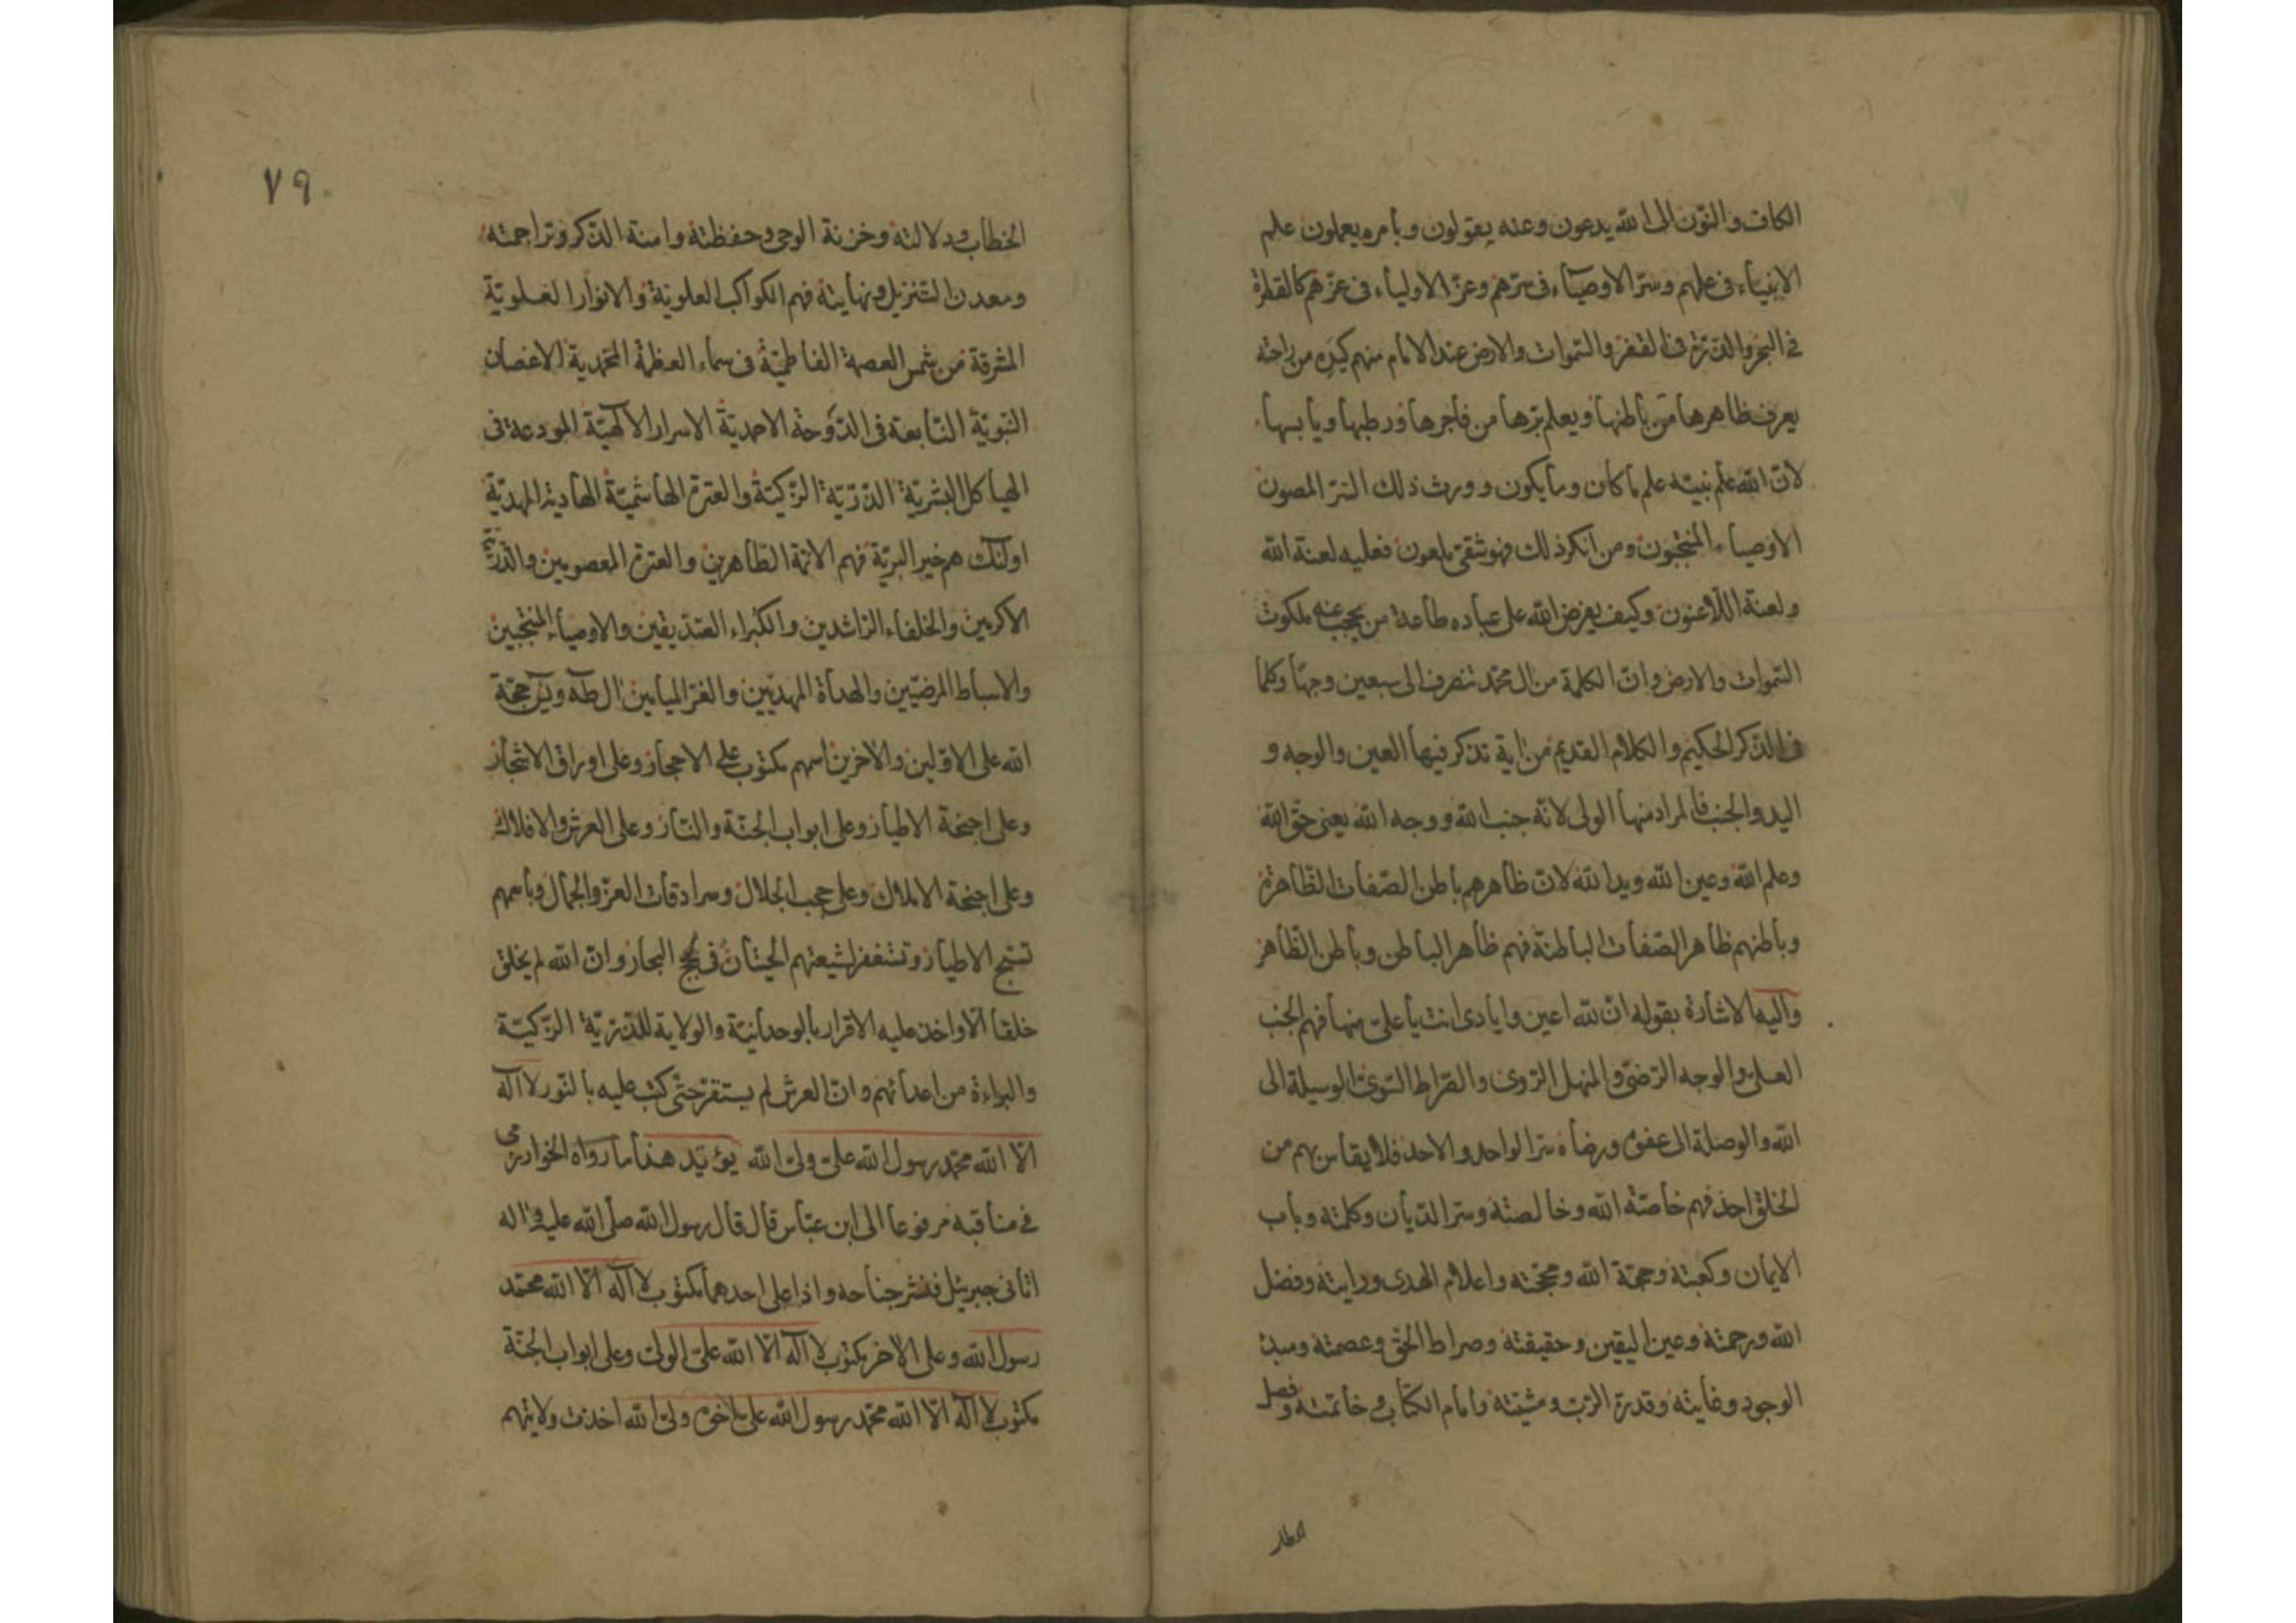 الكاف والنّون الى الله يدعون وعنه يقولون وبأمره يعملون علم
الانبياء فى علمهم وسرّ الاوصيآء فى سرّهم وعزّ الاولياء فى عزّهم كالقطرة
فى البحر والذرّة فى القفز والسّموات والارض عند الامام منهم كيده من راحته
يعرف ظاهرها من باطنها ويعلم برّها من فاجرها ورطبها ويابسها
لانّ الله علّم نبيّه علم ما كان وما يكون وورث ذلك السّرّ المصون
الاوصياء المنتجبون ومن انكر ذلك فهو شقىّ ملعون فعليه لعنة الله
ولعنة اللّاعنون وكيف يفرض الله على عباده طاعة من يحجب عنه ملكوت
السّموات والارض وانّ الكلمة من ال محمّد تنصرف الى سبعين وجهًا وكلما
فى الذّكر الحكيم والكلام القديم من اية تذكر فيها العين والوجه و
اليد والجنب فالمراد منها الولى لانّه جنب الله ووجه الله يعنى حقّ الله
وعلم الله وعين الله ويد الله لانّ ظاهرهم باطن الصّفات الظّاهرة
وباطنهم ظاهر الصّفات الباطنة فهم ظاهر الباطن وباطن الظّاهر
واليه الاشارة بقوله انّ لله اعين وايادى انت يا علىّ منها فهم الجنب
العلىّ والوجه الرّضىّ والمنهل الرّوى والصّراط السّوىّ الوسيلة الى
الله والوصلة الى عفوه ورضاه سرّ الواحد والاحد فلا يقاس بهم من
الخلق احد فهم خاصّة الله وخالصته وسرّ الدّيان وكلمته وباب
الايمان وكعبته وحجّة الله ومحجّته واعلام الهدى ورايته وفضل
الله ورحمته وعين اليقين وحقيقته وصراط الحقّ وعصمته ومبدئ
الوجود وغايته وقدرة الرّبّ ومشيته وامام الكتاب وخاتمته وفصل
الخطاب ودلالته وخزنة الوحى وحفظته وامنة الذّكر وتراجمته
ومعدن التّنزيل ونهايته فهم الكواكب العلويّة والانوار العلويّة
المشرقة من شمس العصمة الفاطميّة فى سماء العظمة المحمّدية الاغصان
النّبويّة النّابعة فى الدّوحة الاحمديّة الاسرار الالٓهيّة المودعة فى
الهياكل البشريّة الذّرّيّة الزّكيّة والعترة الهاشميّة الهادية المهديّة
اولٓئك هم خير البريّة فهم الائمّة الطّاهرين والعترة المعصومين والذّرّيّة
الاكرمين والخلفاء الرّاشدين والكبراء الصّدّيقين والاوصياء المنتجبين
والاسباط المرضيّين والهداة المهديّين والغرّ الميامين ال طه ويس حجّة
الله على الاوّلين والاخرين اسمهم مكتوب على الاحجار وعلى اوراق الاشجار
وعلى اجنحة الاطيار وعلى ابواب الجنّة والنّار وعلى العرش والافلاك
وعلى اجنحة الاملاك وعلى حجب الجلال وسرادقات العزّ والجمال وباسمهم
تسبّح الاطيار وتستغفر لشيعتهم الحيتان فى لجج البحار وانّ الله لم يخلق
خلقا الّا واخذ عليه الاقرار بالوحدانيّة والولاية للذّرّيّة الزّكيّة
والبراءة من اعدائهم وانّ العرش لم يستقرّ حتّى كتب عليه بالنّور لا اله
الّا الله محمّد رسول الله علىّ ولىّ الله يؤيّد هذا ما رواه الخوارزمى
فى مناقبه مرفوعا الى ابن عبّاس قال قال رسول الله صلّى الله عليه واله
اتانى جبرئيل فنشر جناحه واذا على احدهما مكتوب لا اله الّا الله محمّد
رسول الله وعلى الاخر مكتوب لا اله الّا الله علىّ الولىّ وعلى ابواب الجنّة
مكتوب لا اله الّا الله محمّد رسول الله علىّ اخوه ولىّ الله اخذت ولايتهم
٧٩